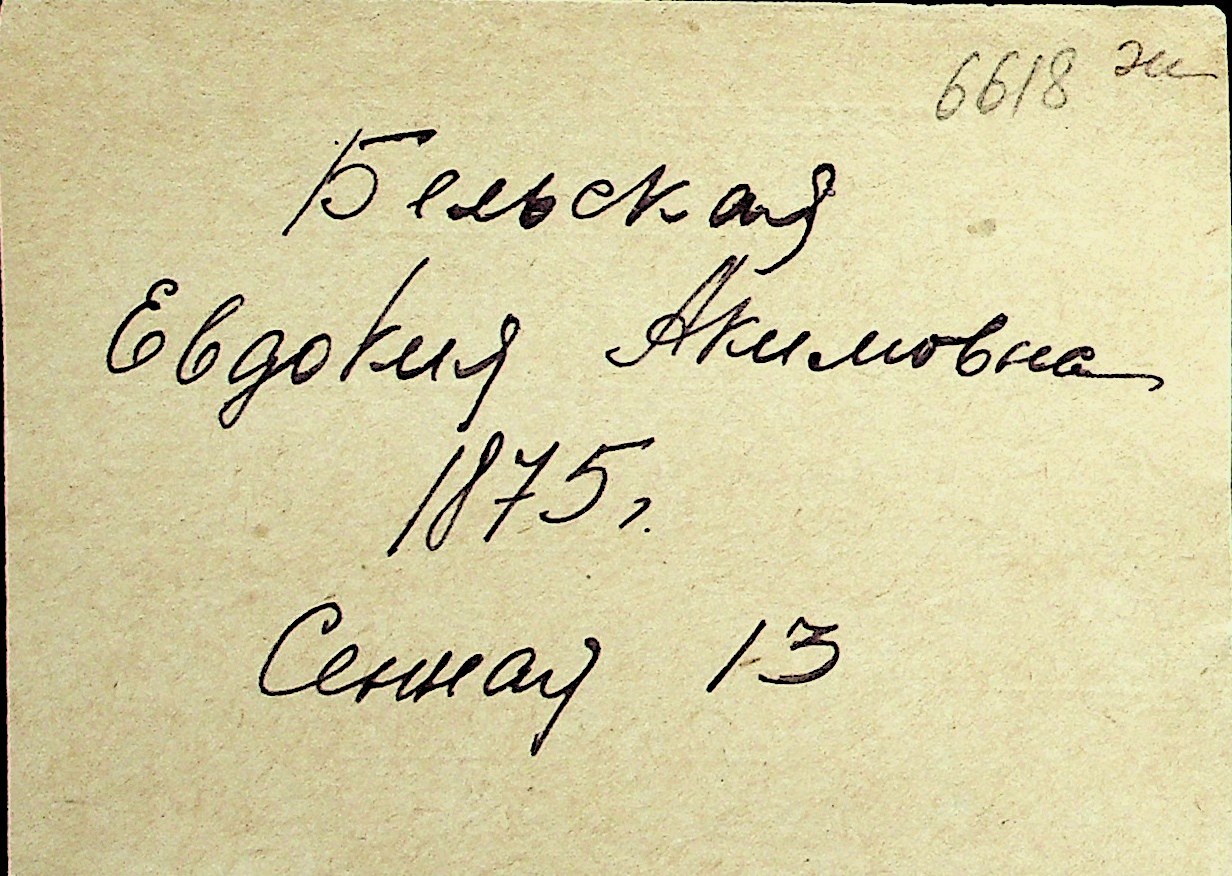 6618 эи
Бельская
Евдокия Акимовна
1875г.
Сенная 13